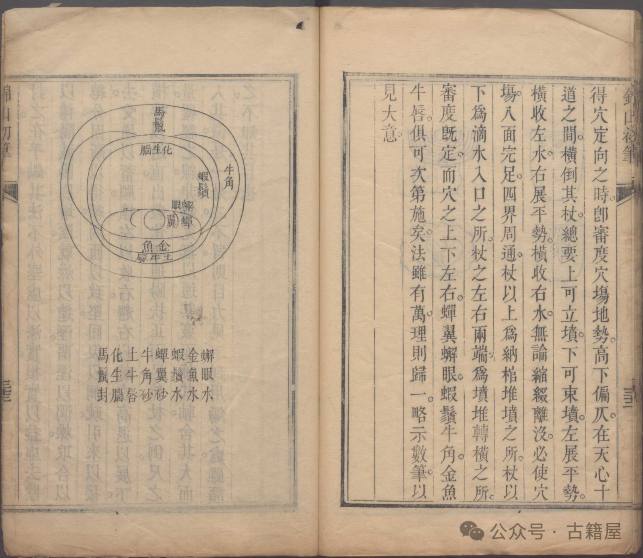 得穴定向之時。卽審度穴塲地勢。高下偏仄在天心十
道之間。橫倒其杖。總要上可立墳。下可束墳。左展平勢。
橫收左水。右展平勢。橫收右水。無論縮綴離沒。必使穴
塲入面完足。四界周通。杖以上爲納棺堆墳之所。杖以
下爲滴水入口之所。杖之左右兩端。爲墳堆轉橫之所。
審度旣定。而穴之上下左右。蟬翼蠏眼。蝦鬚牛角。金魚
牛唇。俱可次第施矣。法雖有萬。理則歸一。略示數筆以
見大意。
馬鬣
化生腦
牛角
蝦鬚
蠏眼
蟬翼
金魚
土牛唇
蠏眼水
金魚水
蝦鬚水
蟬翼砂
牛角砂
土牛唇
化生腦
馬鬣封
公众号·古籍屋